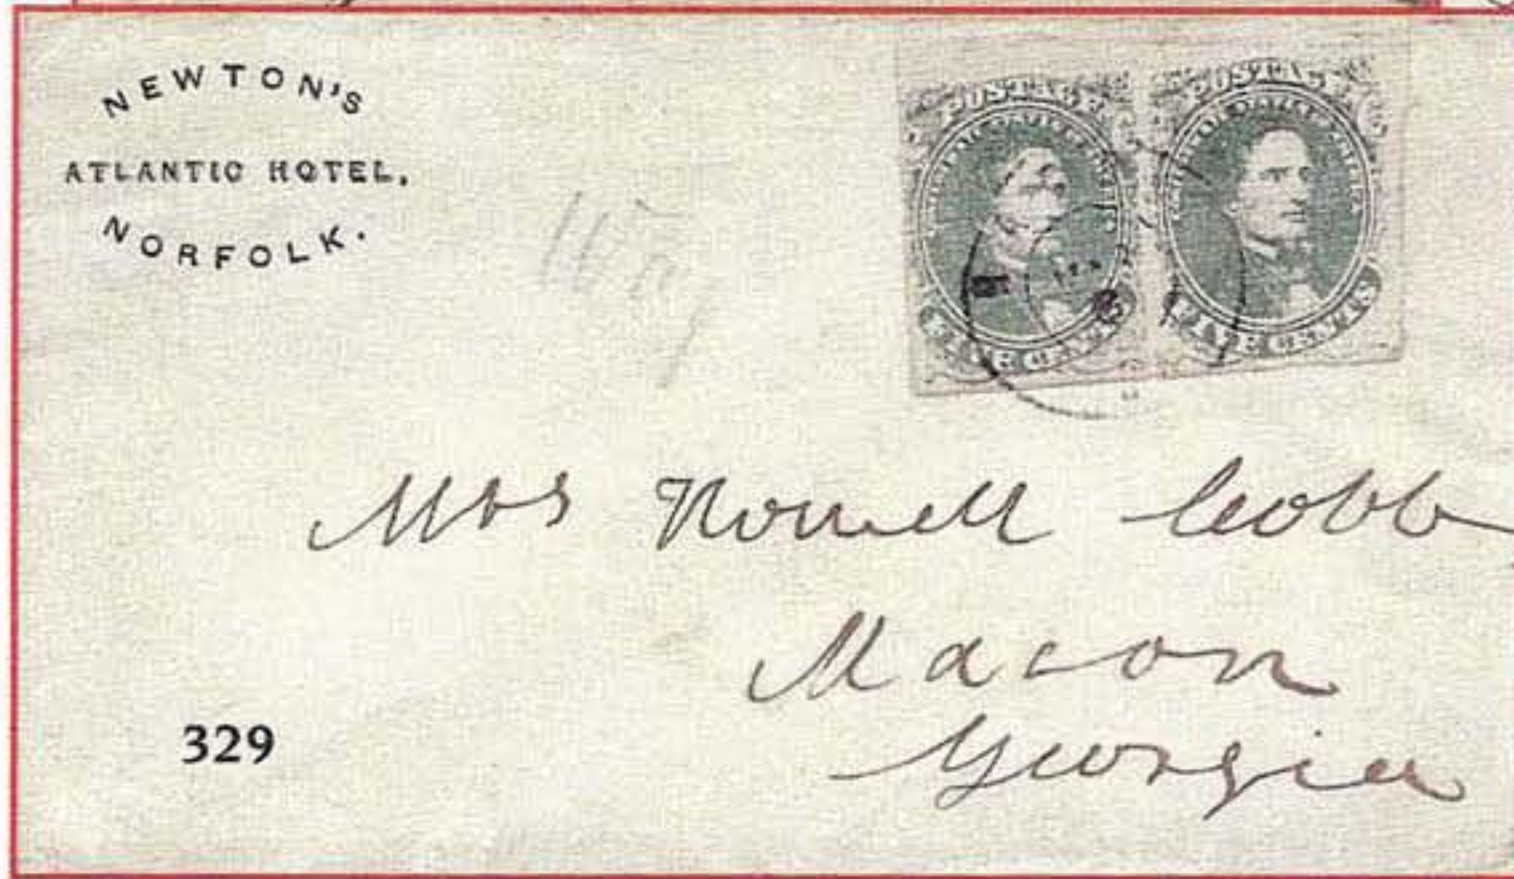 NEWTON'S
ATLANTIC HOTEL,
NORFOLK.
Way
POSTAGE
POSTAGE
FIVE CENTS
FIVE CENTS
Mrs Howell Cobb
Macon
Georgia
329